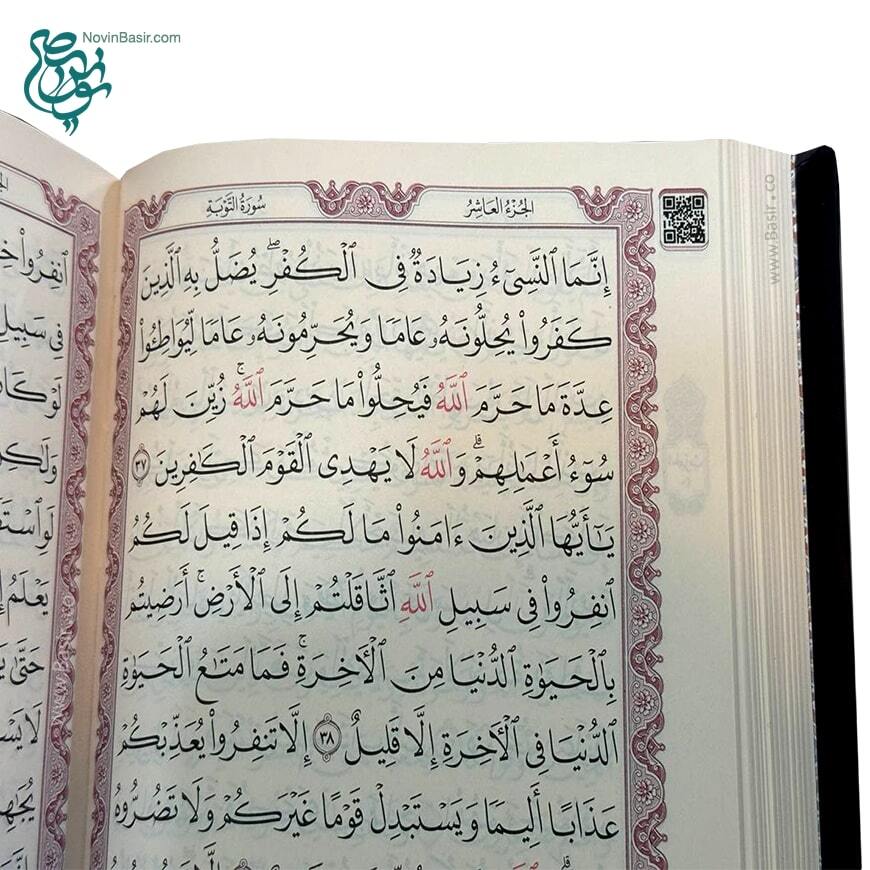 NovinBasir.com
الجُزْءُ العَاشِرُ
سُورَةُ التَّوْبَةِ
إِنَّمَا ٱلنَّسِىٓءُ زِيَادَةٌ فِى ٱلْكُفْرِۖ يُضَلُّ بِهِ ٱلَّذِينَ
كَفَرُوا۟ يُحِلُّونَهُۥ عَامًا وَيُحَرِّمُونَهُۥ عَامًا لِّيُوَاطِـُٔوا۟
عِدَّةَ مَا حَرَّمَ ٱللَّهُ فَيُحِلُّوا۟ مَا حَرَّمَ ٱللَّهُۚ زُيِّنَ لَهُمْ
سُوٓءُ أَعْمَٰلِهِمْۗ وَٱللَّهُ لَا يَهْدِى ٱلْقَوْمَ ٱلْكَٰفِرِينَ ٣٧
يَٰٓأَيُّهَا ٱلَّذِينَ ءَامَنُوا۟ مَا لَكُمْ إِذَا قِيلَ لَكُمُ
ٱنفِرُوا۟ فِى سَبِيلِ ٱللَّهِ ٱثَّاقَلْتُمْ إِلَى ٱلْأَرْضِۚ أَرَضِيتُم
بِٱلْحَيَوٰةِ ٱلدُّنْيَا مِنَ ٱلْءَاخِرَةِۚ فَمَا مَتَٰعُ ٱلْحَيَوٰةِ
ٱلدُّنْيَا فِى ٱلْءَاخِرَةِ إِلَّا قَلِيلٌ ٣٨ إِلَّا تَنفِرُوا۟ يُعَذِّبْكُمْ
عَذَابًا أَلِيمًا وَيَسْتَبْدِلْ قَوْمًا غَيْرَكُمْ وَلَا تَضُرُّوهُ
www.Basir.co
ٱنفِرُوا۟
فِى سَبِيلِ
يَعْلَمُ
حَتَّىٰ